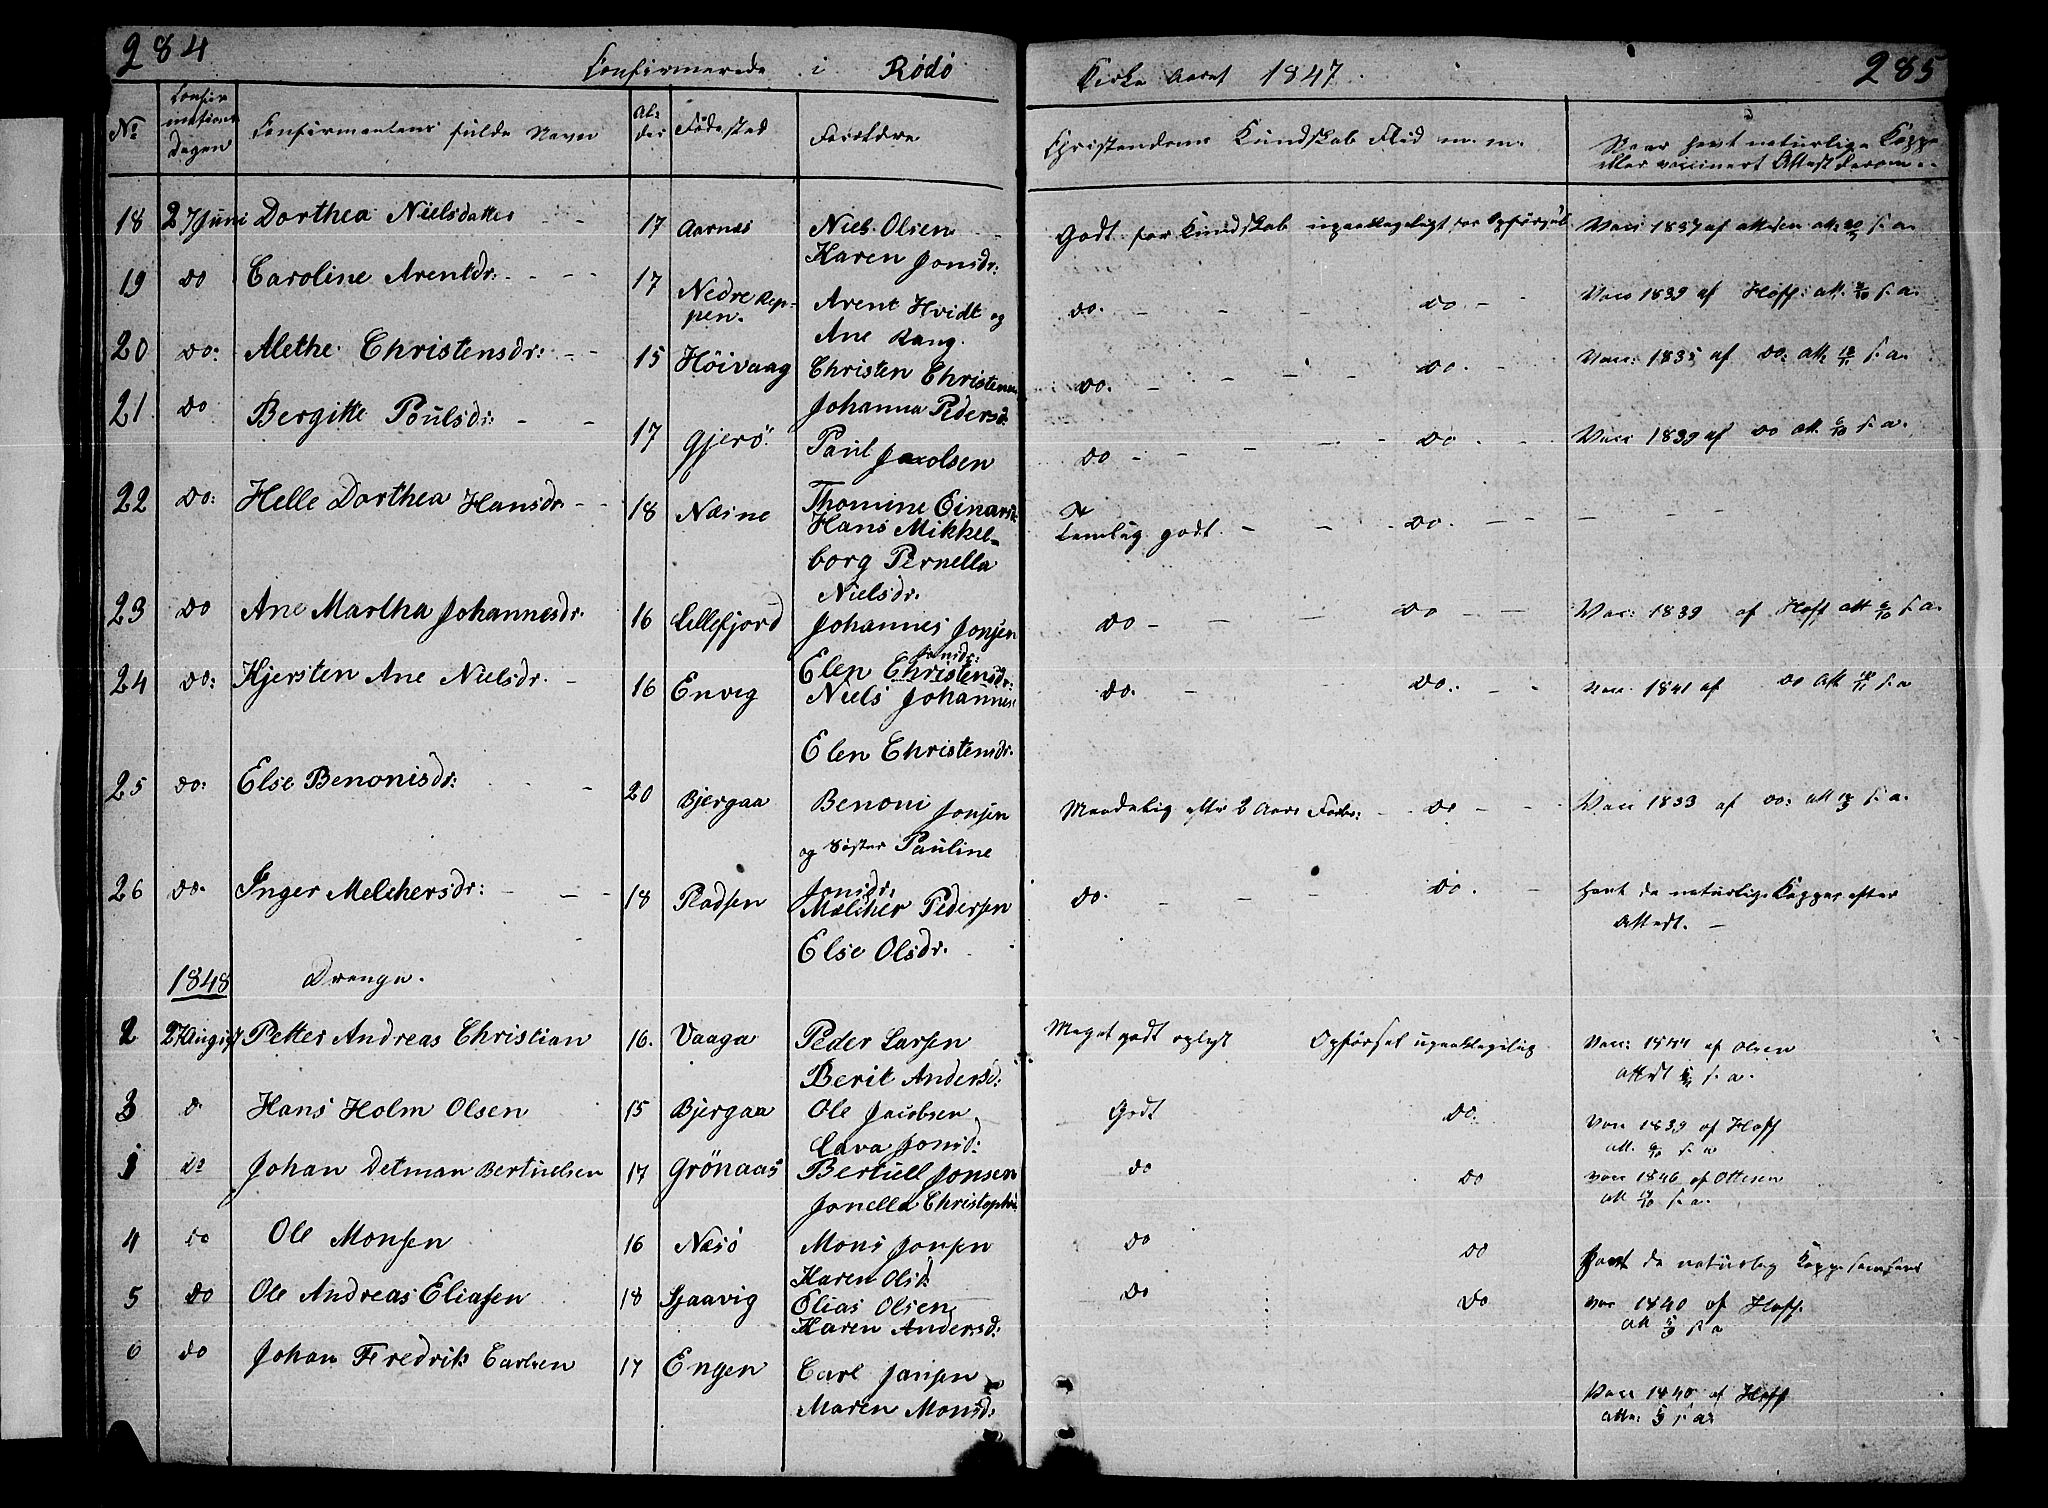 284
Confirmerede i Rödö
Kirke Aaret 1847.
285
No
Confirmations Dagen
Confirmantens fulde Navn
Alder
Födested
Forældre
Christendoms Kundskab Flid m. m.
Naar havt naturlige Kopper eller vaccineret Attest derom
18 27 Juni Dorthea Nielsdatter 17 Aarnes Niels Olsen
Karen Jonsdr: Godt for Kundskab upaaklageligt for Opförsel Vacc 1837 af s. a.
19 do Caroline Arentdr: 17 Nedre Reppen. Arent Hvidt og
Ane Rang. do. do Vacc 1839 af Hoff: att. s. a.
20 do: Alethe Christensdr: 15 Höivaag Christen Christensen
Johanna Pedersd: do. do. Vacc: 1835 af do: att s. a.
21 do Bergitte Poulsdr: 17 Gjerö Paul Jacolsen
Thomine Einarsd: do do Vacc 1839 af do att. 6/10 s. a.
22 do: Helle Dorthea Hansdr 18 Næsne Hans Mikkel-
borg Pernella
Nielsdr: Temlig godt do.
23 do Ane Martha Johannesdr: 16 Lillefjord Johannes Jonsen
Jonsdr:
Elen Christensdr: do do Vacc: 1839 af Hoff att 6/10 s. a.
24 do: Kjersten Ane Nielsdr. 16 Envig Niels Johannes:
Elen Christensdr. do. do. Vacc. 1841 af do Att s. a
25 do: Else Benonisdr: 20 Bjergaa Benoni Jonsen
og Söster Pauline
Jonsdr. Maadelig efter 2 Aars Forber: do Vacc 1833 af do: att s. a.
26 do. Inger Melchersdr: 18 Pladsen Melcher Pedersen
Else Olsdr. do. do. havt de naturlige Kopper efter
Attest.
1848 Drenge.
2 27 August Petter Andreas Christian 16. Vaaga Peder Larsen
Berit Andersd: Meget godt oplyst Opförsel upaaklagelig Vacc: 1844 af Olsen
Attest s. a.
3 d. Hans Holm Olsen 15 Bjergaa Ole Jacobsen
Lava Jonsd: Godt do. Vacc 1839 af Hoff
att. s. a
1 do Johan Detman Bertuelsen 17 Grönaas Bertuell Jonsen
Jonella Christophd: do do vacc 1846 af Ottesen
att s. a.
4 do Ole Monsen 16 Næsö Mons Jonsen
Karen Olsd: do do havt de naturlig Kopper
5 do Ole Andreas Eliasen 18 Sjaavig Elias Olsen
Karen Andersd: do do vac 1840 af Hoff.
att s a
6 do Johan Fredrik Carlsen 17 Engen Carl Jansen
Maren Monsd: Vacc 1840 af Hoff
att: s. a.